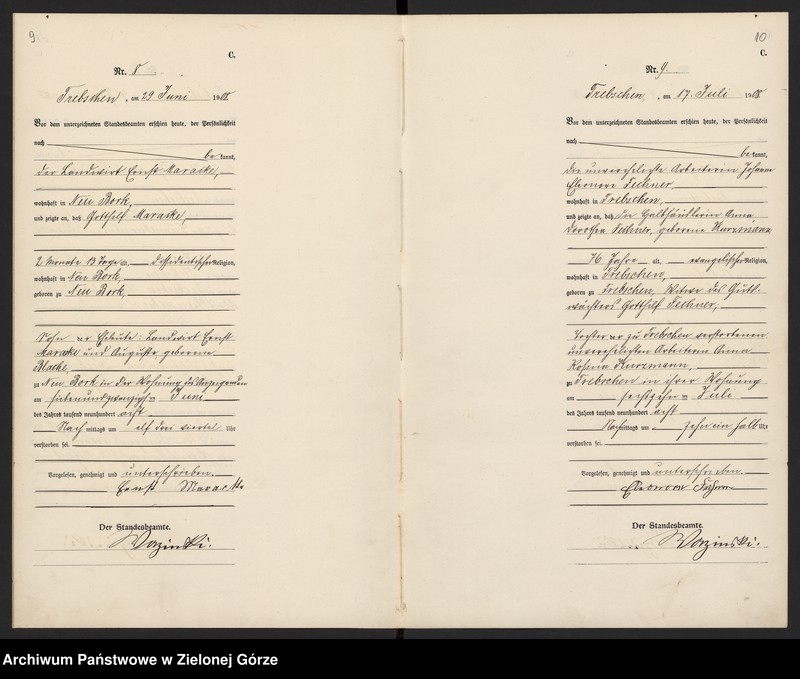 9
C.
Nr. 8
Trebschen, am 29 Juni 1908
Vor dem unterzeichneten Standesbeamten erschien heute, der Persönlichkeit
nach
bekannt,
der Landwirt Ernst Maraske,
wohnhaft in Neu Bork,
und zeigte an, daß Gotthilf Maraske,
2 Monate 13 Tage dissidentischer Religion,
wohnhaft in Neu Bork,
geboren zu Neu Bork,
Sohn der Eheleute Landwirt Ernst
Maraske und Auguste geborene
zu Neu Bork in der Wohnung des Anzeigenden
am siebenundzwanzigsten Juni
des Jahres tausend neunhundert acht
Nachmittags um elf drei viertel Uhr
verstorben sei.
Vorgelesen, genehmigt und unterschrieben.
Ernst Maraske
Der Standesbeamte.
Worzinski.
10
C.
Nr. 9.
Trebschen, am 17. Juli 1908
Vor dem unterzeichneten Standesbeamten erschien heute, der Persönlichkeit
nach
bekannt,
die unverehelichte Arbeiterin Johanne
Eleonore Fechner
wohnhaft in Trebschen,
und zeigte an, daß die Anna
Dorothea Fechner, geborene Kurzmann
76 Jahre alt, evangelischer Religion,
wohnhaft in Trebschen,
geboren zu Trebschen, Witwe des
wächters Gotthilf Fechner,
Tochter der zu Trebschen verstorbenen
unverehelichten Arbeiterin Anna
Rosina Kurzmann,
zu Trebschen in ihrer Wohnung
am sechszehnten Juli
des Jahres tausend neunhundert acht
Nachmittags um zehn ein halb Uhr
verstorben sei.
Vorgelesen, genehmigt und unterschrieben.
Eleonore Fechner
Der Standesbeamte.
Worzinski.
Archiwum Państwowe w Zielonej Górze